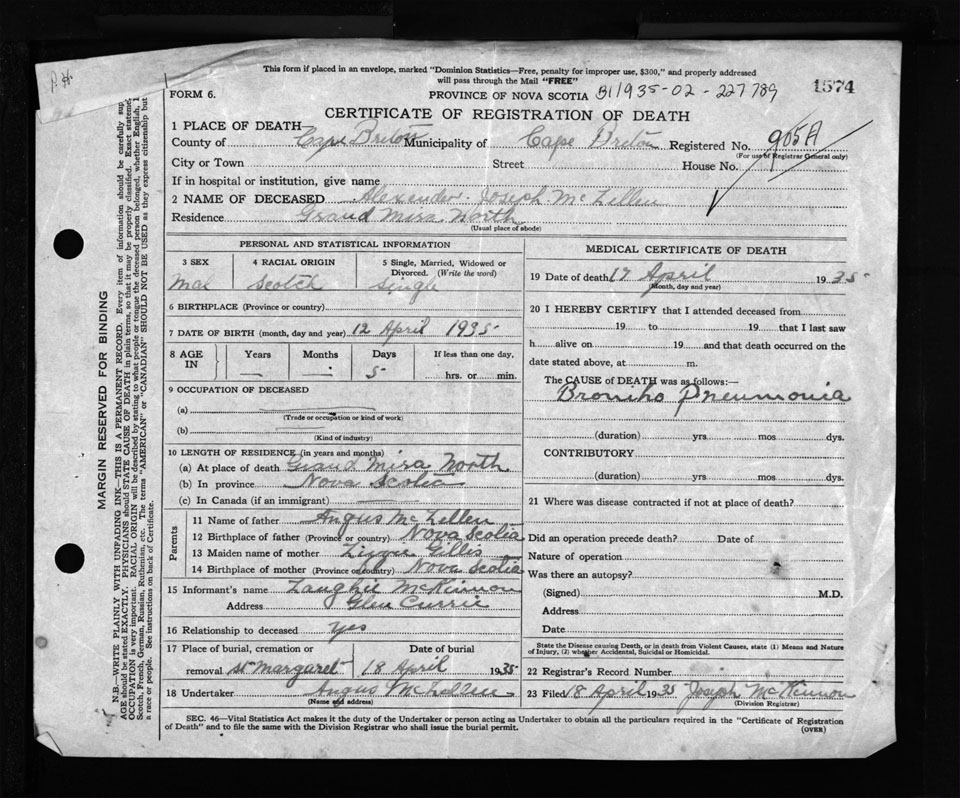 P.H.
This form if placed in an envelope, marked "Dominion Statistics—Free, penalty for improper use, $300," and properly addressed
will pass through the Mail "FREE"
FORM 6.
PROVINCE OF NOVA SCOTIA B11935-02-227789
1574
CERTIFICATE OF REGISTRATION OF DEATH
1 PLACE OF DEATH—
County of Cape Breton Municipality of Cape Breton Registered No. 905A
(For use of Registrar General only)
City or Town Street House No.
If in hospital or institution, give name
2 NAME OF DECEASED Alexender Joseph McLellen
Residence Grand Mira North
(Usual place of abode)
PERSONAL AND STATISTICAL INFORMATION
3 SEX 4 RACIAL ORIGIN 5 Single, Married, Widowed or
Divorced. (Write the word)
Mal Scotch Single
6 BIRTHPLACE (Province or country)
7 DATE OF BIRTH (month, day and year) 12 April 1935
8 AGE IN Years Months Days If less than one day,
— . 5 hrs. or min.
9 OCCUPATION OF DECEASED
(a)
(Trade or occupation or kind of work)
(b)
(Kind of industry)
10 LENGTH OF RESIDENCE (in years and months)
(a) At place of death Grand Mira North
(b) In province Nova Scotia
(c) In Canada (if an immigrant)
Parents
11 Name of father Angus McLellen
12 Birthplace of father (Province or country) Nova Scolia
13 Maiden name of mother Lizzie Gillis
14 Birthplace of mother (Province or country) Nova Scolia
15 Informant's name Laughie McKinnon
Address Glen Currie
16 Relationship to deceased yes
17 Place of burial, cremation or Date of burial
removal St Margaret 18 April 1935
18 Undertaker Angus McLellen
(Name and address)
MEDICAL CERTIFICATE OF DEATH
19 Date of death 17 April 1935
(Month, day and year)
20 I HEREBY CERTIFY that I attended deceased from
19 to 19 that I last saw
h alive on 19 and that death occurred on the
date stated above, at m.
The CAUSE of DEATH was as follows:—
Broniho Pneumonia
(duration) yrs mos dys.
CONTRIBUTORY
(duration) yrs. mos dys.
21 Where was disease contracted if not at place of death?
Did an operation precede death? Date of
Nature of operation
Was there an autopsy?
(Signed) M.D.
Address
Date
State the Disease causing Death, or in death from Violent Causes, state (1) Means and Nature
of Injury, (2) whether Accidental, Suicidal or Homicidal.
22 Registrar's Record Number
23 Filed 18 April 1935 Joseph McKinnon
(Division Registrar)
SEC. 46—Vital Statistics Act makes it the duty of the Undertaker or person acting as Undertaker to obtain all the particulars required in the "Certificate of Registration
of Death" and to file the same with the Division Registrar who shall issue the burial permit.
(OVER)
MARGIN RESERVED FOR BINDING
N.B.—WRITE PLAINLY WITH UNFADING INK—THIS IS A PERMANENT RECORD. Every item of information should be carefully sup
AGE should be stated EXACTLY. PHYSICIANS should STATE CAUSE OF DEATH in plain terms, so that it may be properly classified. Exact stateme
OCCUPATION is very important. RACIAL ORIGIN will be described by stating to what people or tongue the deceased person belonged, whether English, I
Scotch, French, German, Russian, Ruthenian, etc. The terms "AMERICAN" or "CANADIAN" SHOULD NOT BE USED as they express citizenship but
a race or people. See instructions on back of Certificate.